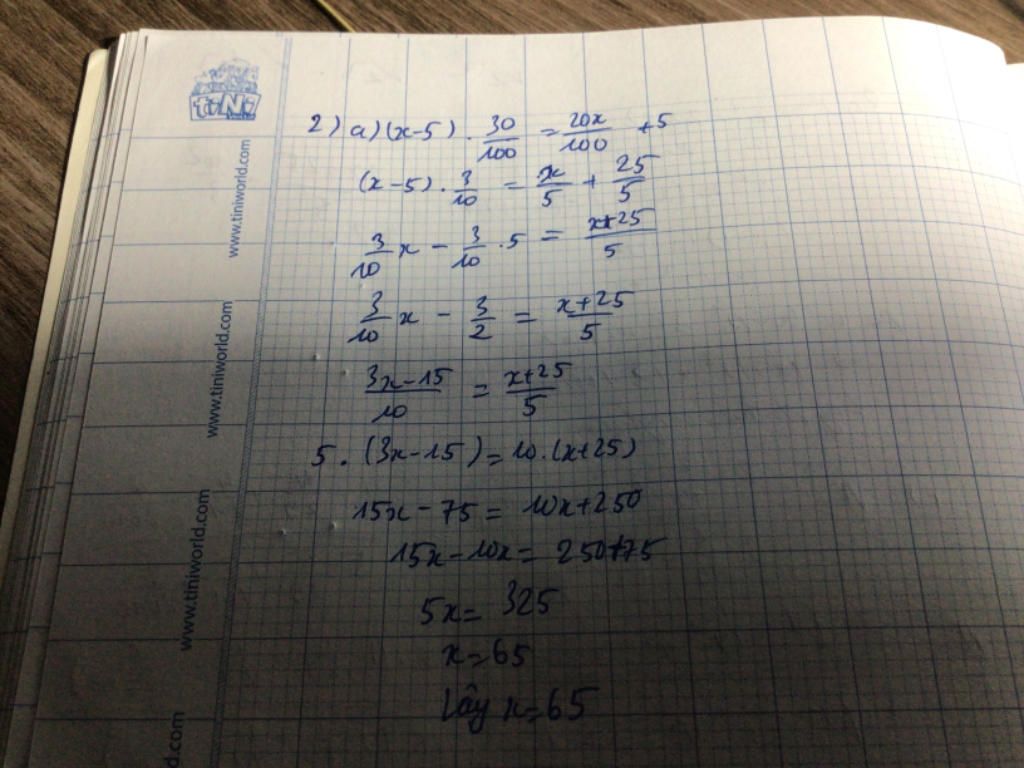 tiNi
www.tiniworld.com
www.tiniworld.com
www.tiniworld.com
d.com
2) a) (x-5) . 30/100 = 20x/100 + 5
(x-5) . 3/10 = x/5 + 25/5
3/10 x - 3/10 . 5 = x+25/5
3/10 x - 3/2 = x+25/5
3x-15/10 = x+25/5
5 . (3x-15) = 10.(x+25)
15x - 75 = 10x+250
15x-10x = 250+75
5x = 325
x = 65
Vây x = 65